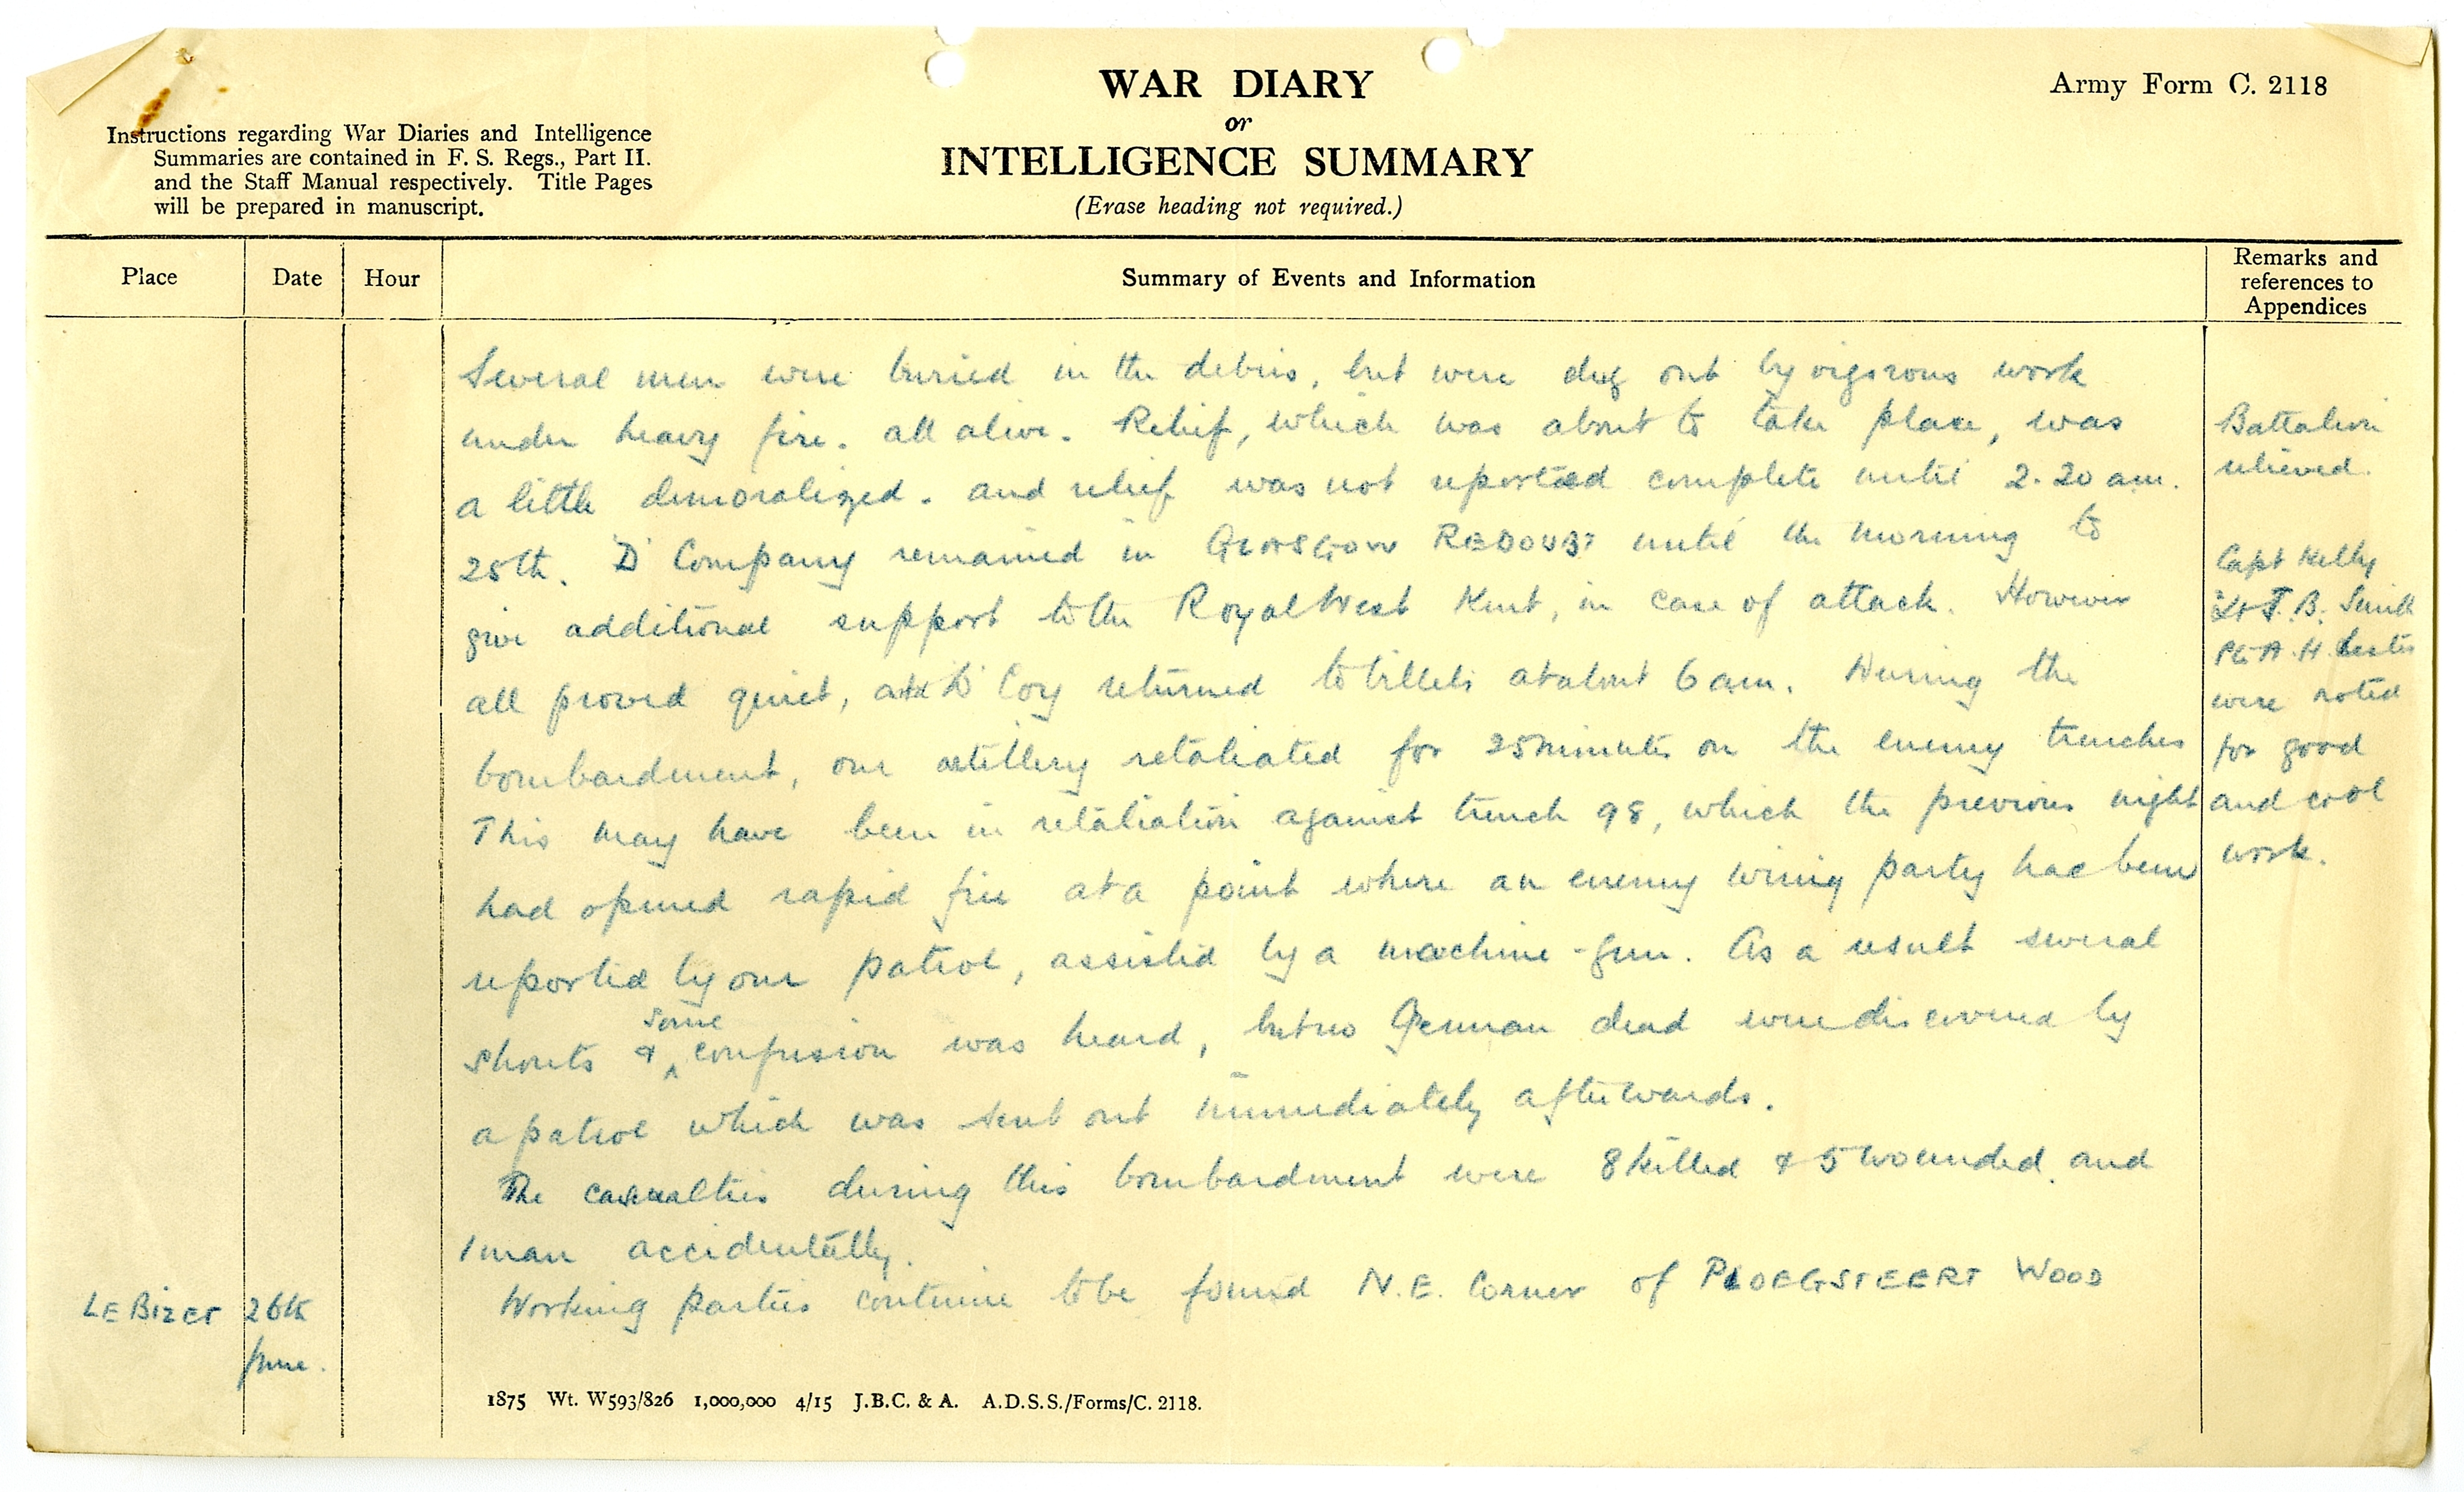 WAR DIARY
or
INTELLIGENCE SUMMARY
(Erase heading not required.)
Army Form C. 2118
Instructions regarding War Diaries and Intelligence
Summaries are contained in F. S. Regs., Part II.
and the Staff Manual respectively. Title Pages
will be prepared in manuscript.
Place
Date
Hour
Summary of Events and Information
Remarks and
references to
Appendices
Several men were buried in the debris, but were dug out by vigorous work
under heavy fire. all alive. Relief, which was about to take place, was
a little demoralized. and relief was not reported complete until 2.20 am.
25th. 'D' Company remained in GLASGOW REDOUBT until the morning to
give additional support to the Royal West Kent, in case of attack. However
all proved quiet, and D' Coy returned to billets at about 6 am. During the
bombardment, our artillery retaliated for 25 minutes on the enemy trenches
This may have been in retaliation against trench 98, which the previous night
had opened rapid fire at a point where an enemy wiring party had been
reported by our patrol, assisted by a machine-gun. As a result several
shouts & some confusion was heard, but no German dead were discovered by
a patrol which was sent out immediately afterwards.
The casualties during this bombardment were 8 killed & 5 wounded. and
1 man accidentally.
Working parties continue to be found N.E. Corner of PLOEGSTEERT WOOD
Battalion
relieved.
Capt Kelly
Lt J. B. Smith
Pte A. H. Lester
were noted
for good
and cool
work.
LE BIZET
26th
June.
1875 Wt. W593/826 1,000,000 4/15 J.B.C. & A. A.D.S.S./Forms/C. 2118.